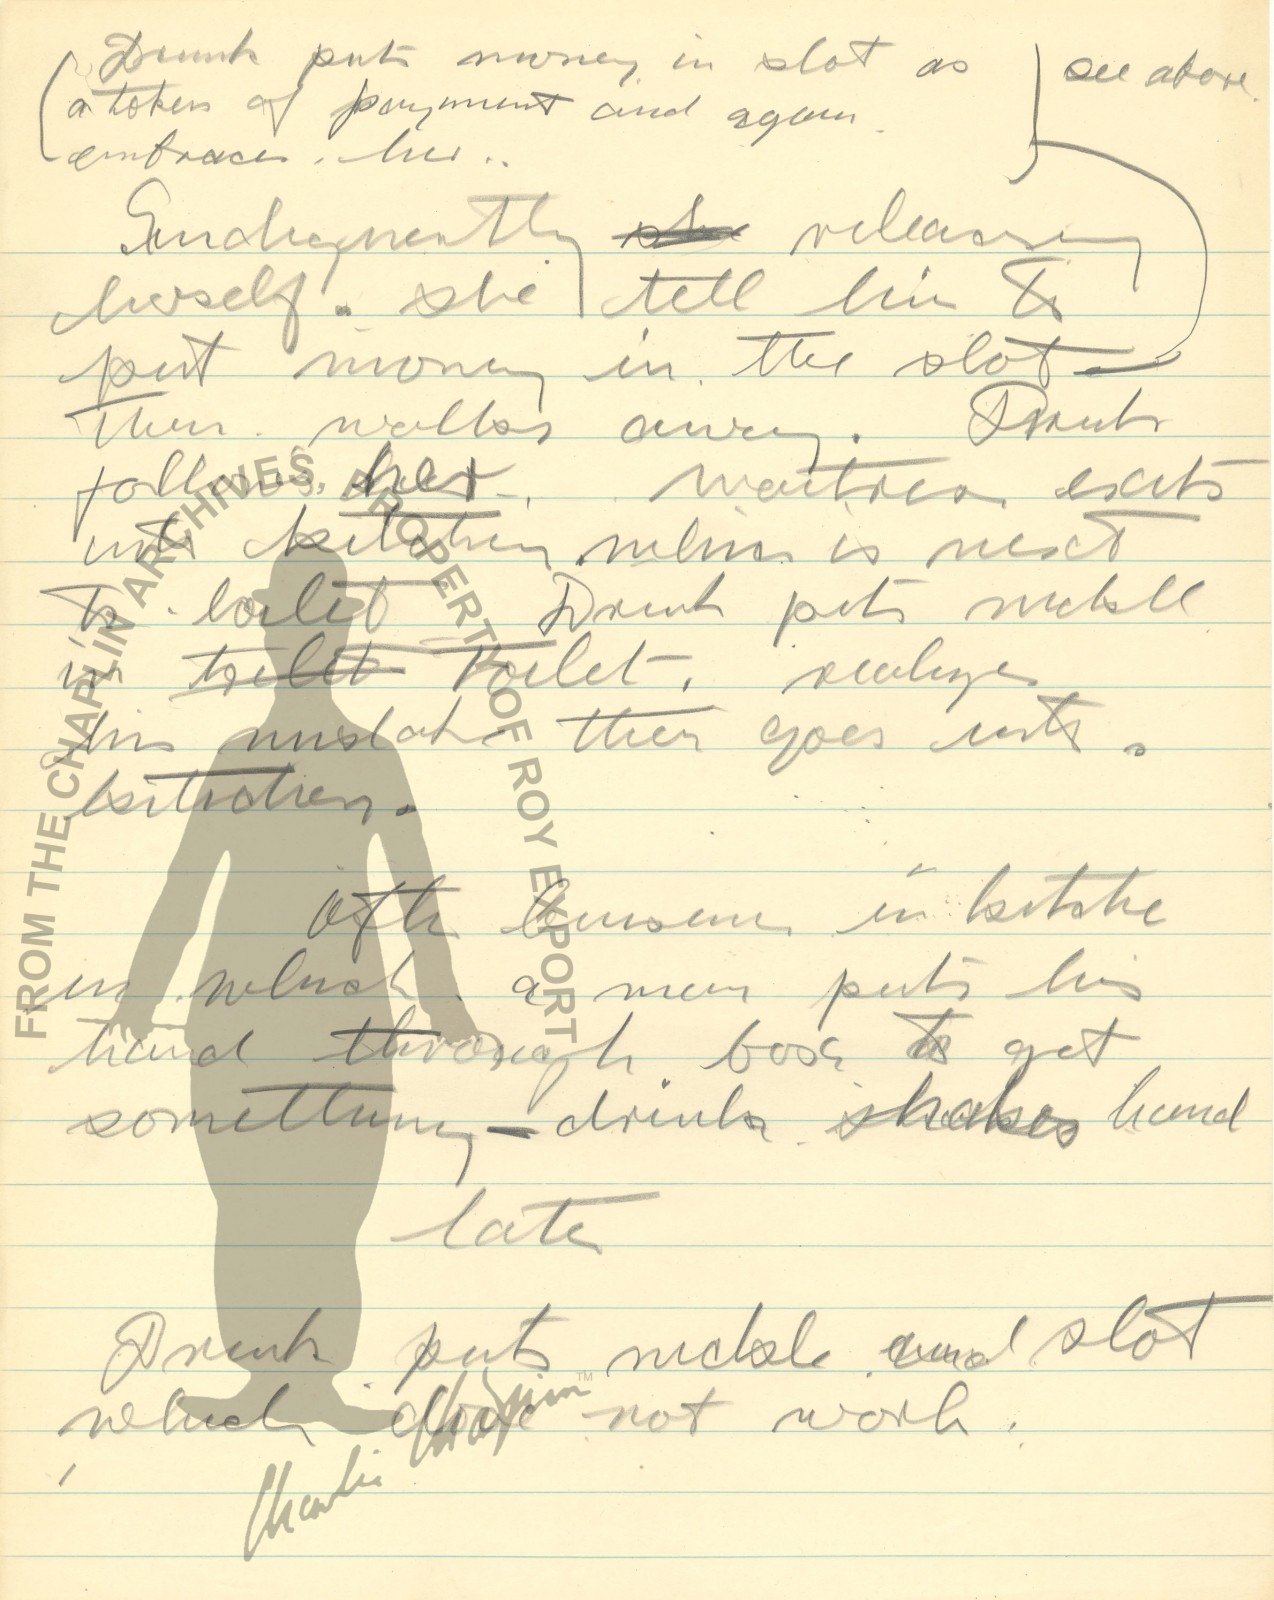 Drunk puts money in slot as
a token of payment and again
embraces her..
see above.
Indignantly she releasing
herself. she tell him to
put money in the slot
then walks away. Drunk
follows her. waitress exits
into kitchen which is next
to toilet Drunk puts nickle
in toilet toilet. realizes
his mistake then goes into
kitchen.
in kitche
in which a man puts his
hand through box to get
something - drunk shakes hand
late
Drunk puts nickle and slot
which does not work.
FROM THE CHAPLIN ARCHIVES, PROPERTY OF ROY EXPORT
Charlie Chaplin TM